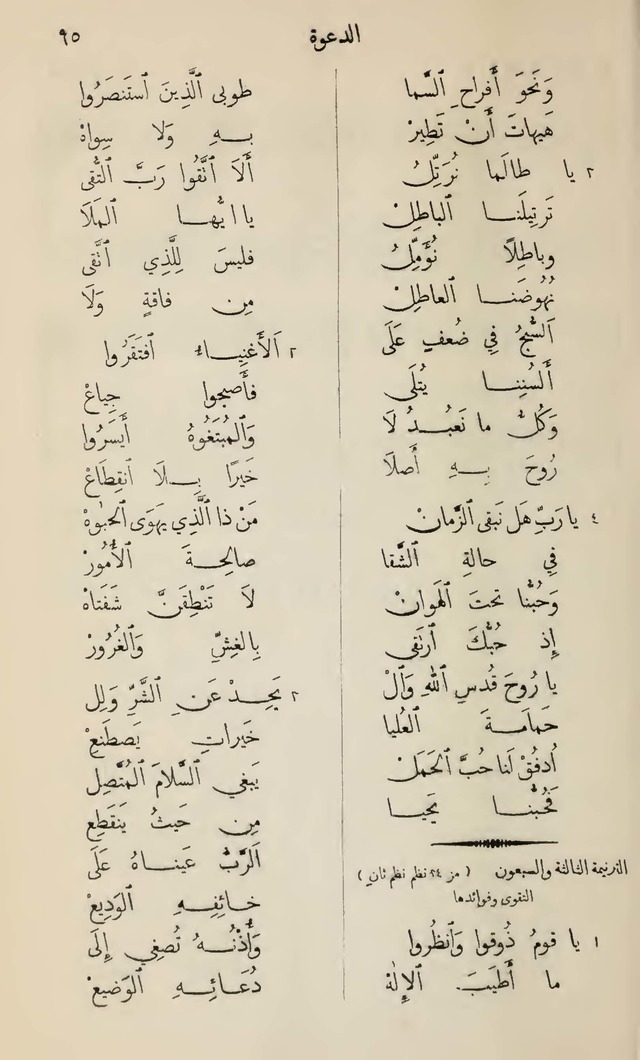 الدعوة ٩٥
وَنَحْوَ أَفراحِ ٱلسَّما
هَيهاتَ أَنْ تَطِيرْ
٣ يا طالَما نُرَتِّلُ
تَرتِيلَنـا الباطِلْ
وباطِلًا نُؤَمِّلُ
نُهُوضَنـا العاطِلْ
اَلسُّبْحُ فِي ضُعفٍ عَلَى
أَلسُنِنـا يُتلَى
وَكُلُّ ما نَعبُـدُ لَا
رُوحَ بِـهِ أَصلَا
٤ يا رَبِّ هَل نَبقى ٱلزَّمان
فِي حالةِ ٱلشَّقا
وَحُبُّنا تحتَ ٱلهَوانْ
إِذ حُبُّكَ ٱرتَقى
يا رُوحَ قُدسِ ٱللهِ وَٱلْ
حَمامـةَ ٱلعُليا
أُدفُقْ لَنا حُبَّ ٱلحَمَلْ
فَحُبُّنـا يَحيـا
الترنيمة الثالثة والسبعون ( مز ٣٤ نظم ثانٍ )
التقوى وفوائدها
١ يا قومُ ذُوقوا وَٱنظُروا
ما أَطيَبَ ٱلإِلٰهْ
طوبى ٱلَّذِينَ ٱستَنصَرُوا
بـهِ وَلا سِواهْ
أَلَا ٱتَّقُوا رَبَّ ٱلتُّقى
يا ايُّهـا ٱلمَلَا
فليسَ لِلَّذِي ٱتَّقى
مِن فاقةٍ وَلَا
٢ اَلأَغنِيـاءُ ٱفتَقَرُوا
فأَصبحوا جِياعْ
وَٱلمُبتَغُوهُ أَيسَرُوا
خَيرًا بِـلَا ٱنقِطَاعْ
مَنْ ذا ٱلَّذِي يَهوَى ٱلحَيٰوةْ
صالِحةَ ٱلأُمُورْ
لاَ تَنْطِقَنَّ شَفَتاهْ
بِالغِشِّ وَٱلغُرُورْ
٣ يَحِـدْ عَنِ ٱلشَّرِّ وَلِل
خَيراتِ يَصطَنِعْ
يَبغي ٱلسَّلامَ ٱلمُتَّصِل
مِن حَيثُ يَنقَطِع
اَلرَّبُّ عَينـاهُ عَلَى
خـائِفِـهِ ٱلوَدِيعْ
وَأُذْنُـهُ تُصغِي إِلَى
دُعَـائِـهِ ٱلوَضِيعْ